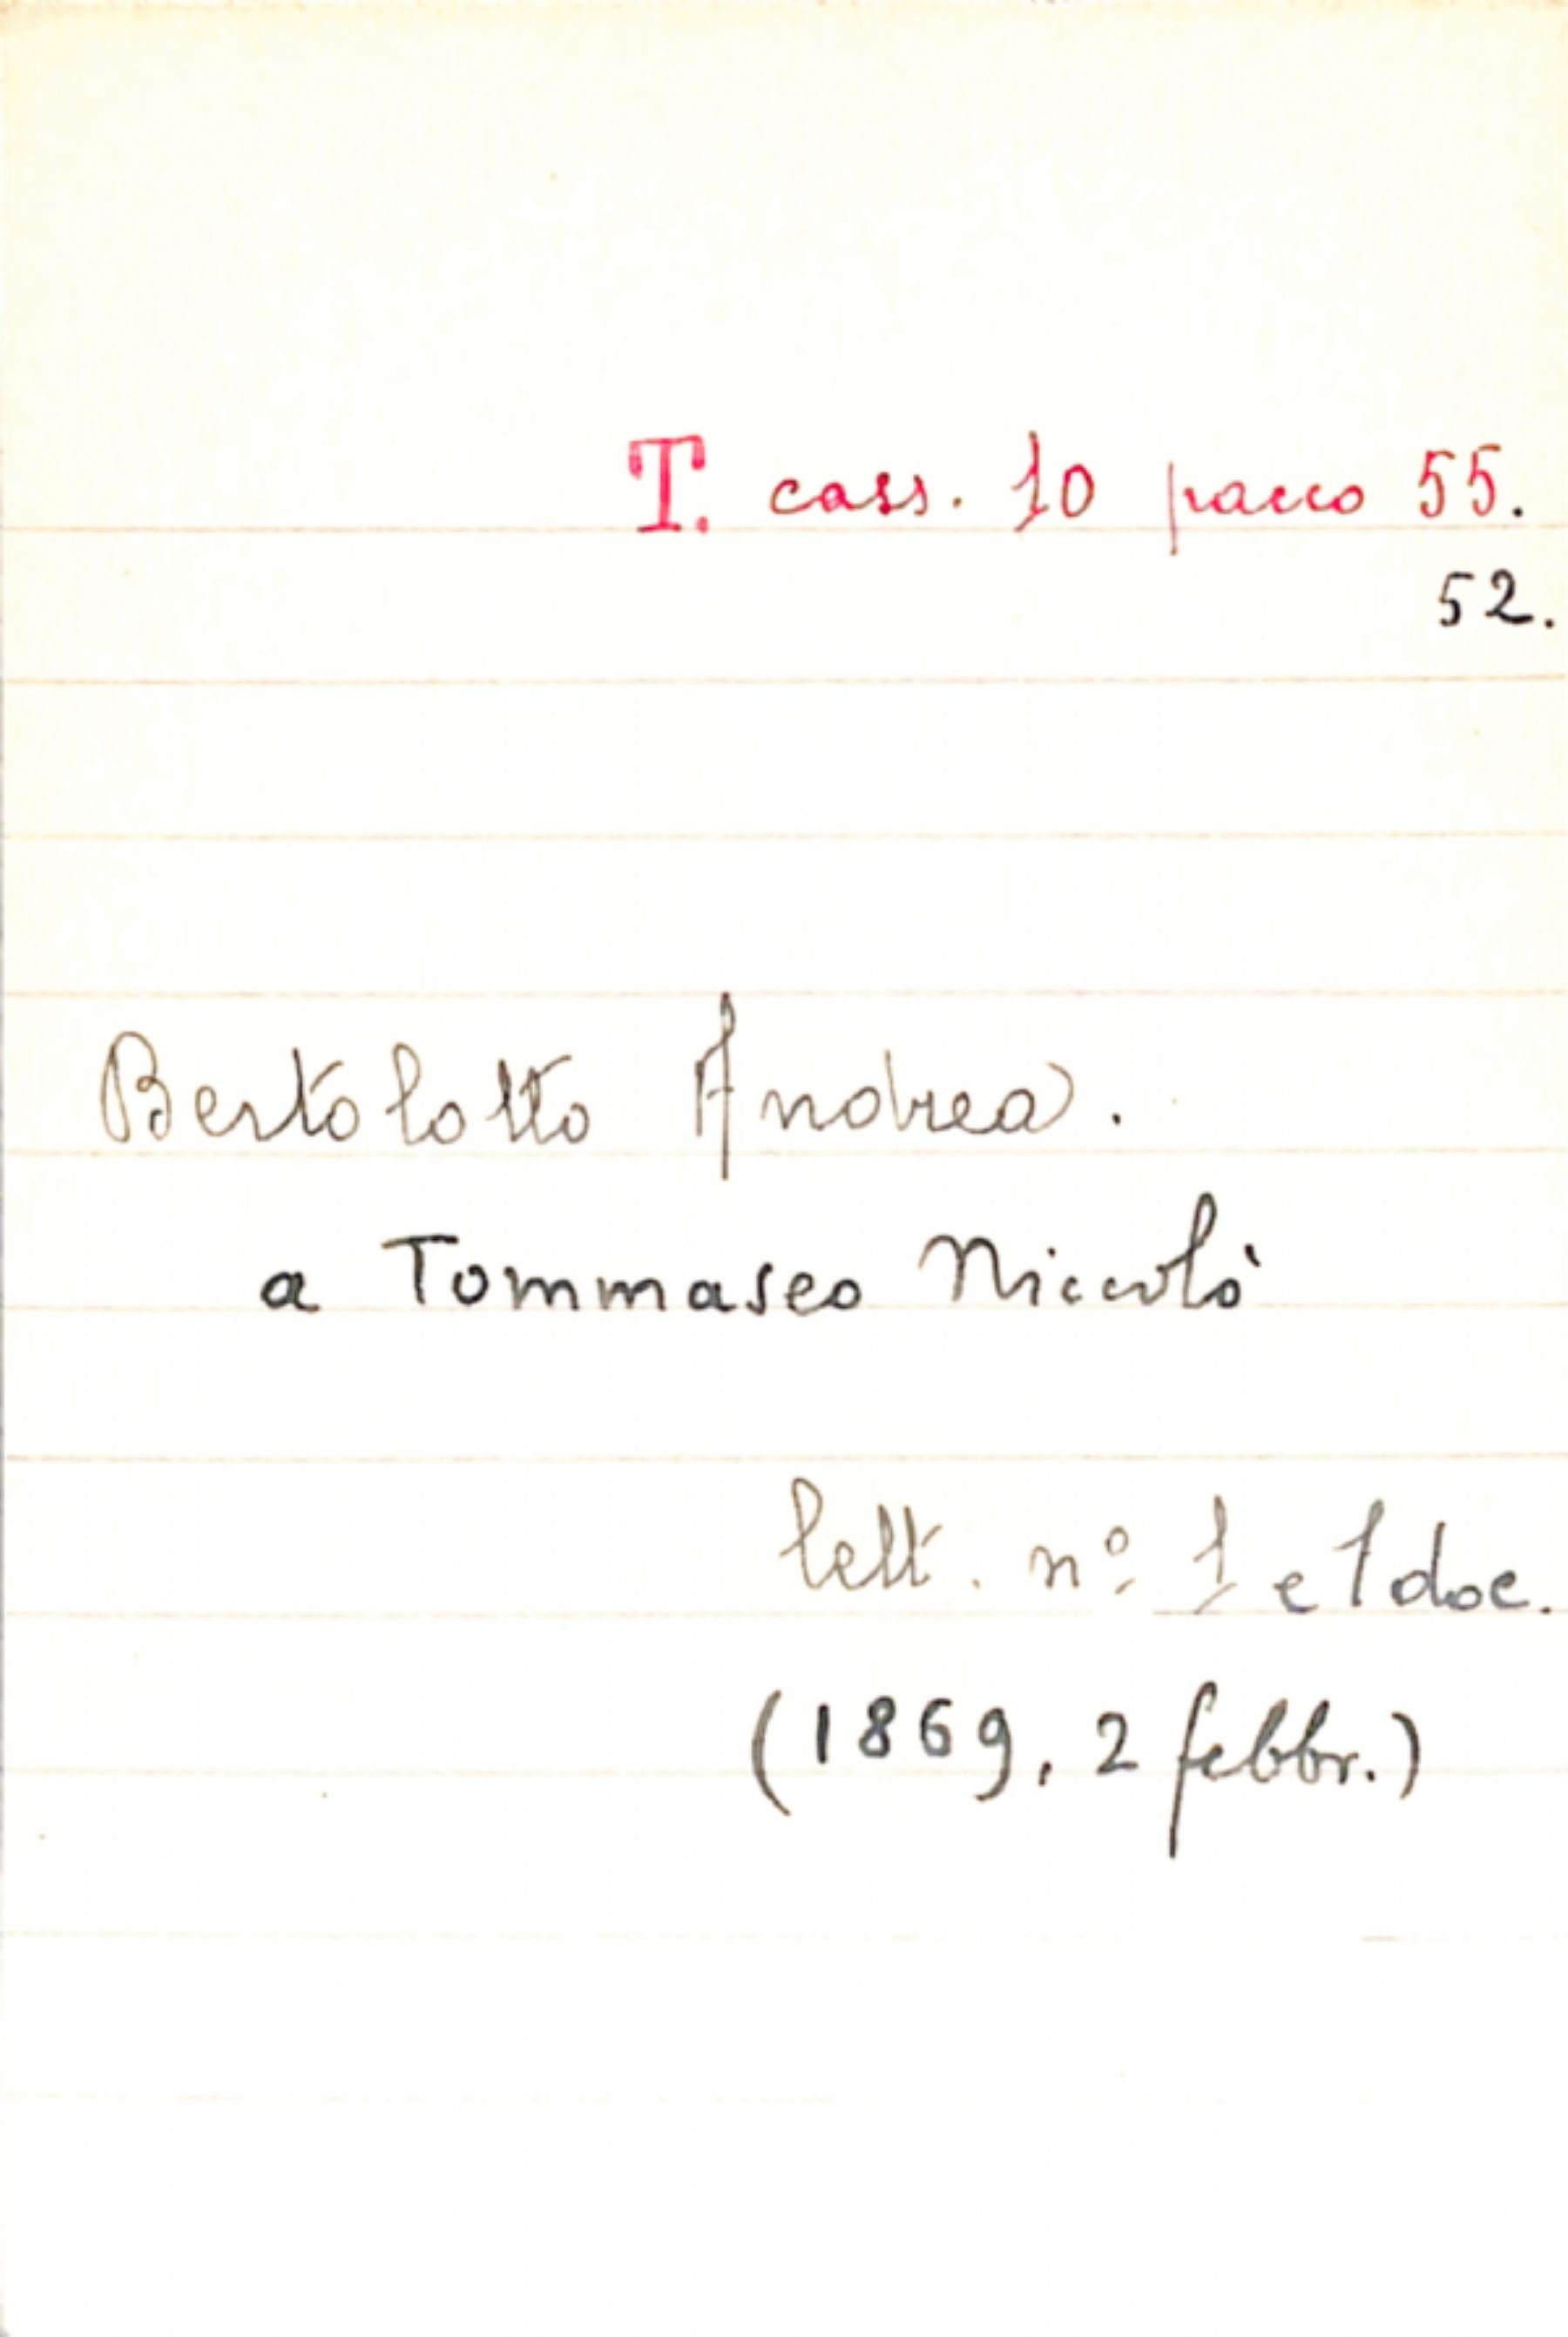 T. cass. 10 pacco 55.
52.
Bertolotto Andrea.
a Tommaseo Niccolò
lett. nº 1 e 1 doc.
(1869, 2 febbr.)